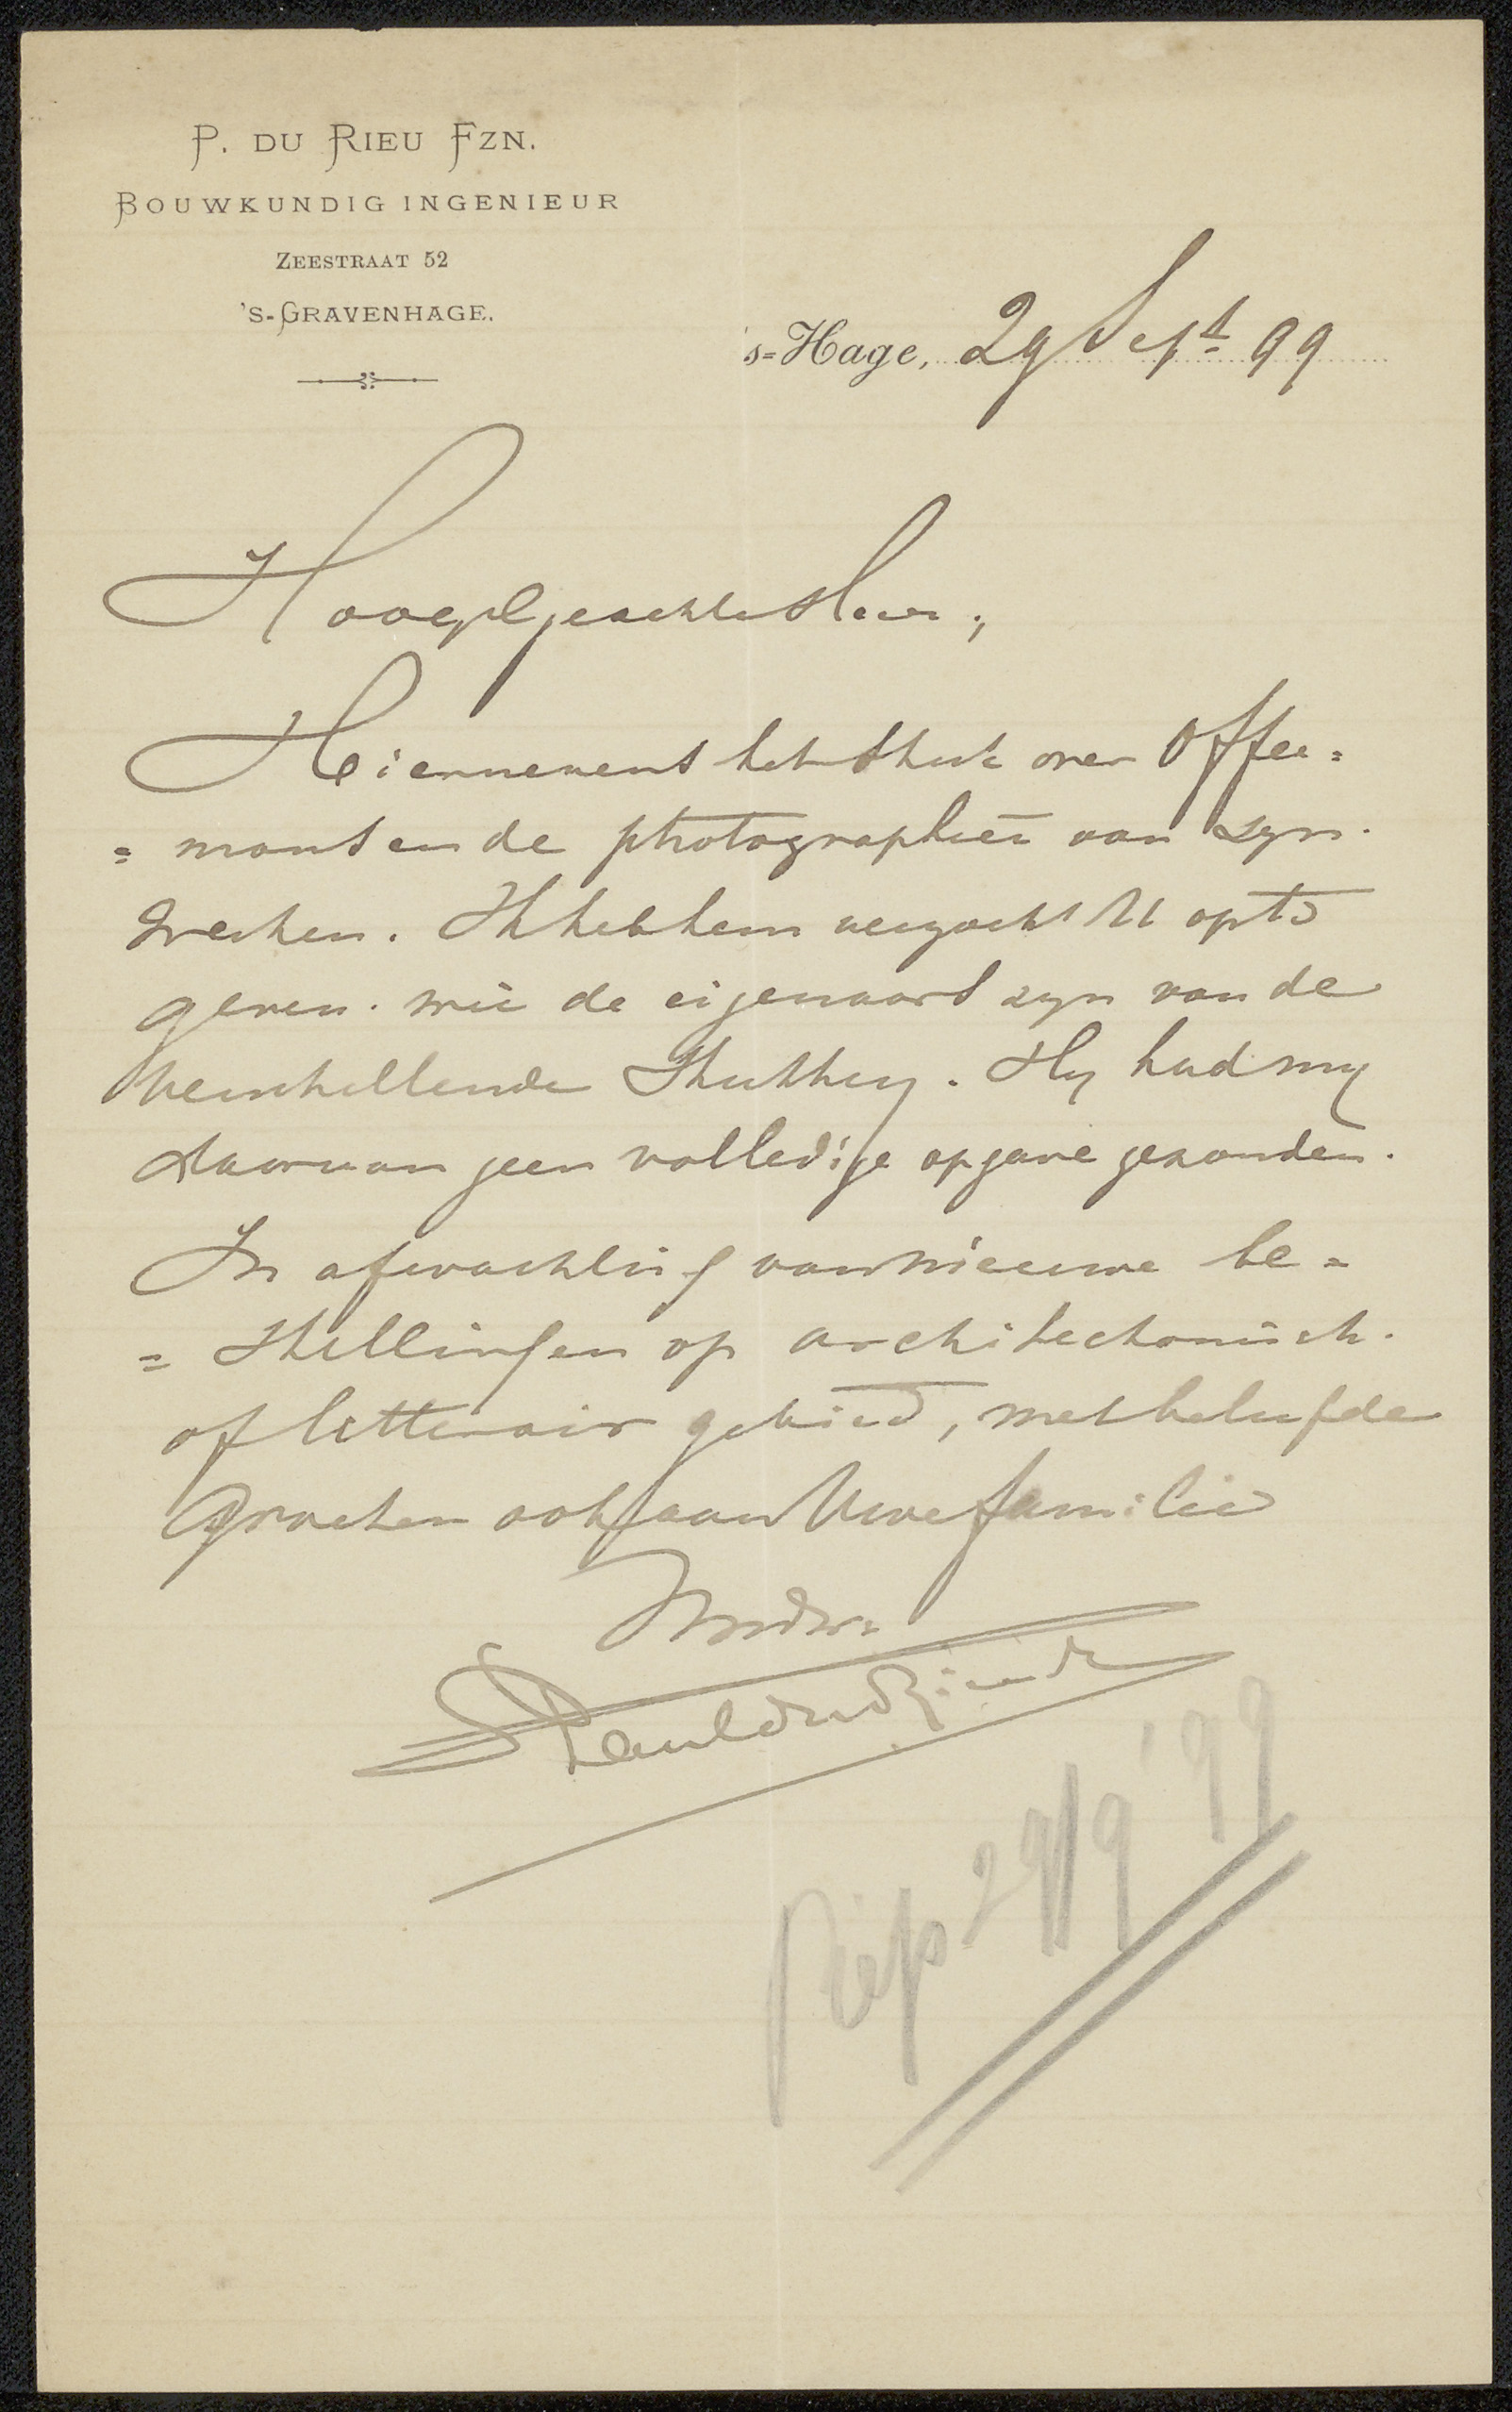 P. DU RIEU FZN.
BOUWKUNDIG INGENIEUR
ZEESTRAAT 52
'S-GRAVENHAGE.
's=Hage, 29 Sept 99
Hoogelgeachte Heer,
Hiernevens het stuk over Offer=
= mans en de photographieën van zyn
werken. Ik heb hem verzocht U op te
geven wie de eigenaars zyn van de
verschillende stukken. Hy had my
daarvan geen volledige opgave gezonden.
In afwachting van nieuwe be=
= stellingen op architectonisch
of litterair gebied, met beleefde
groeten ook aan Uwe familie
Paul du Rieu
Rép 29/9 '99